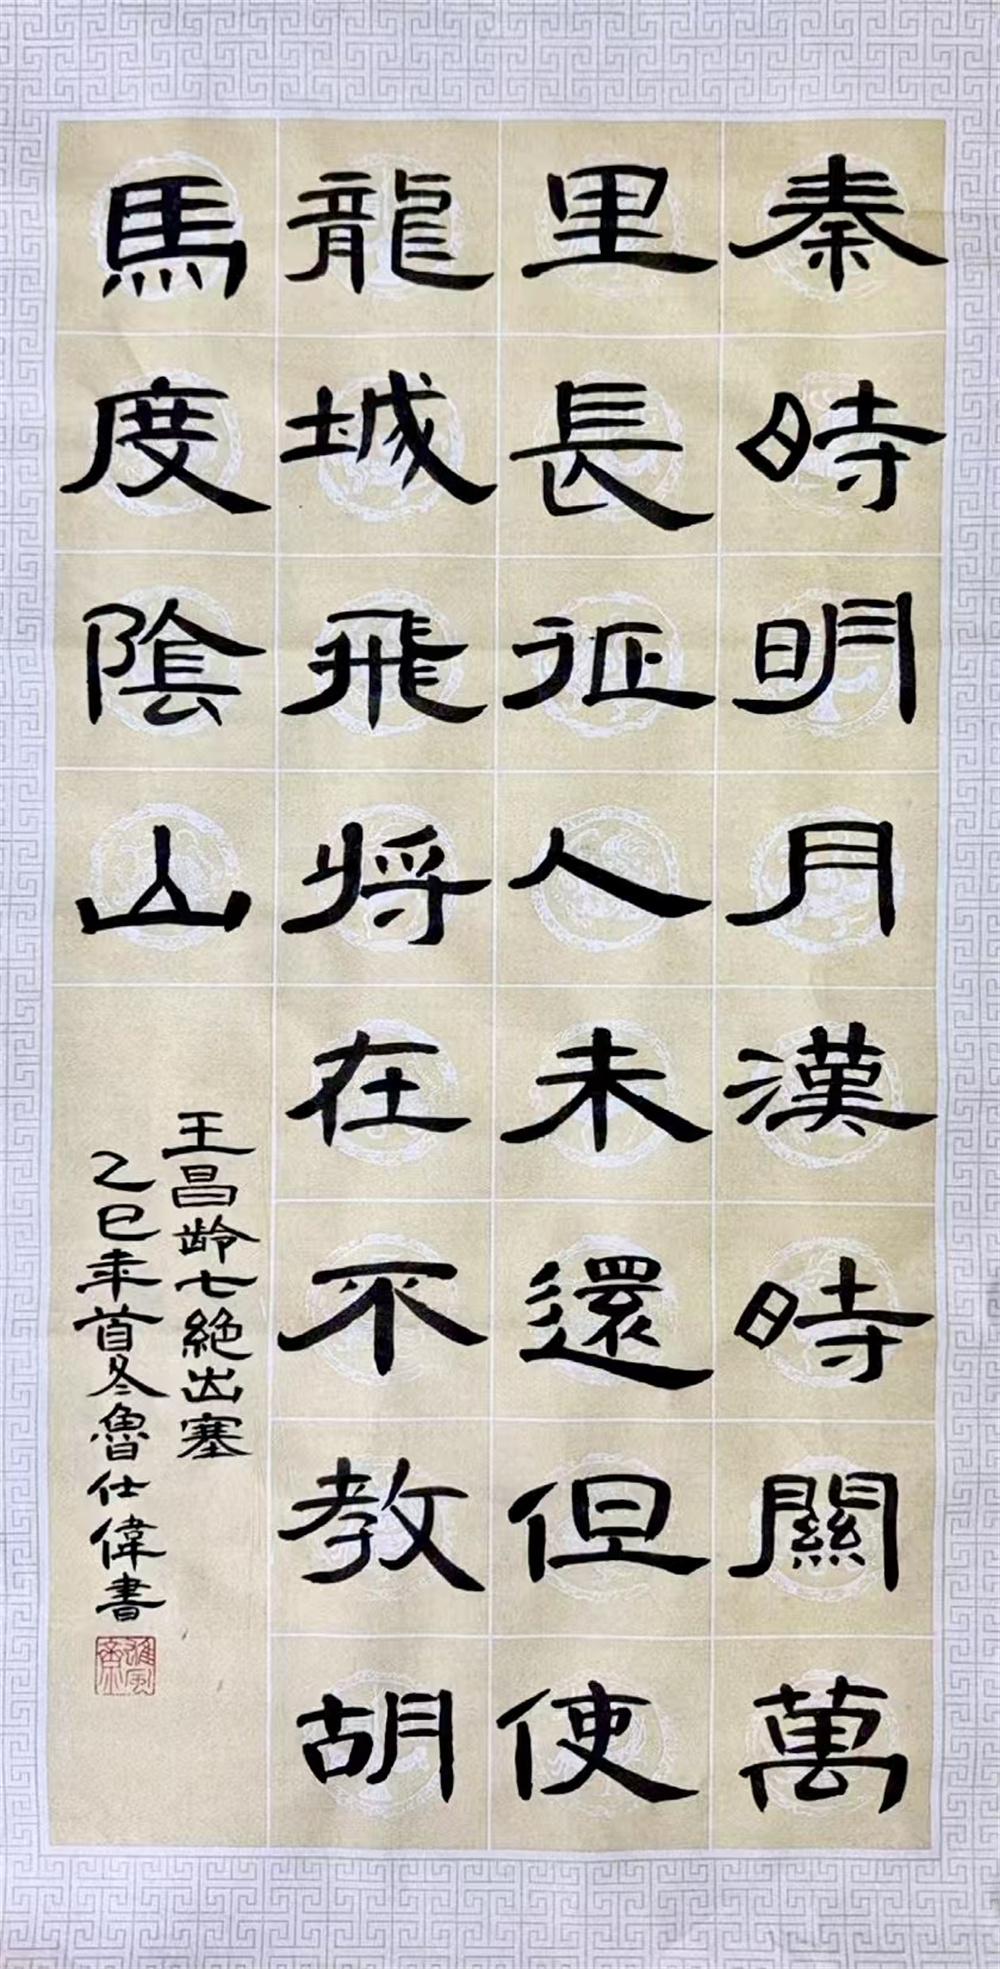 秦時明月漢時關萬
里長征人未還但使
龍城飛将在不教胡
馬度陰山
王昌龄七絕出塞
乙巳年首冬魯仕偉書